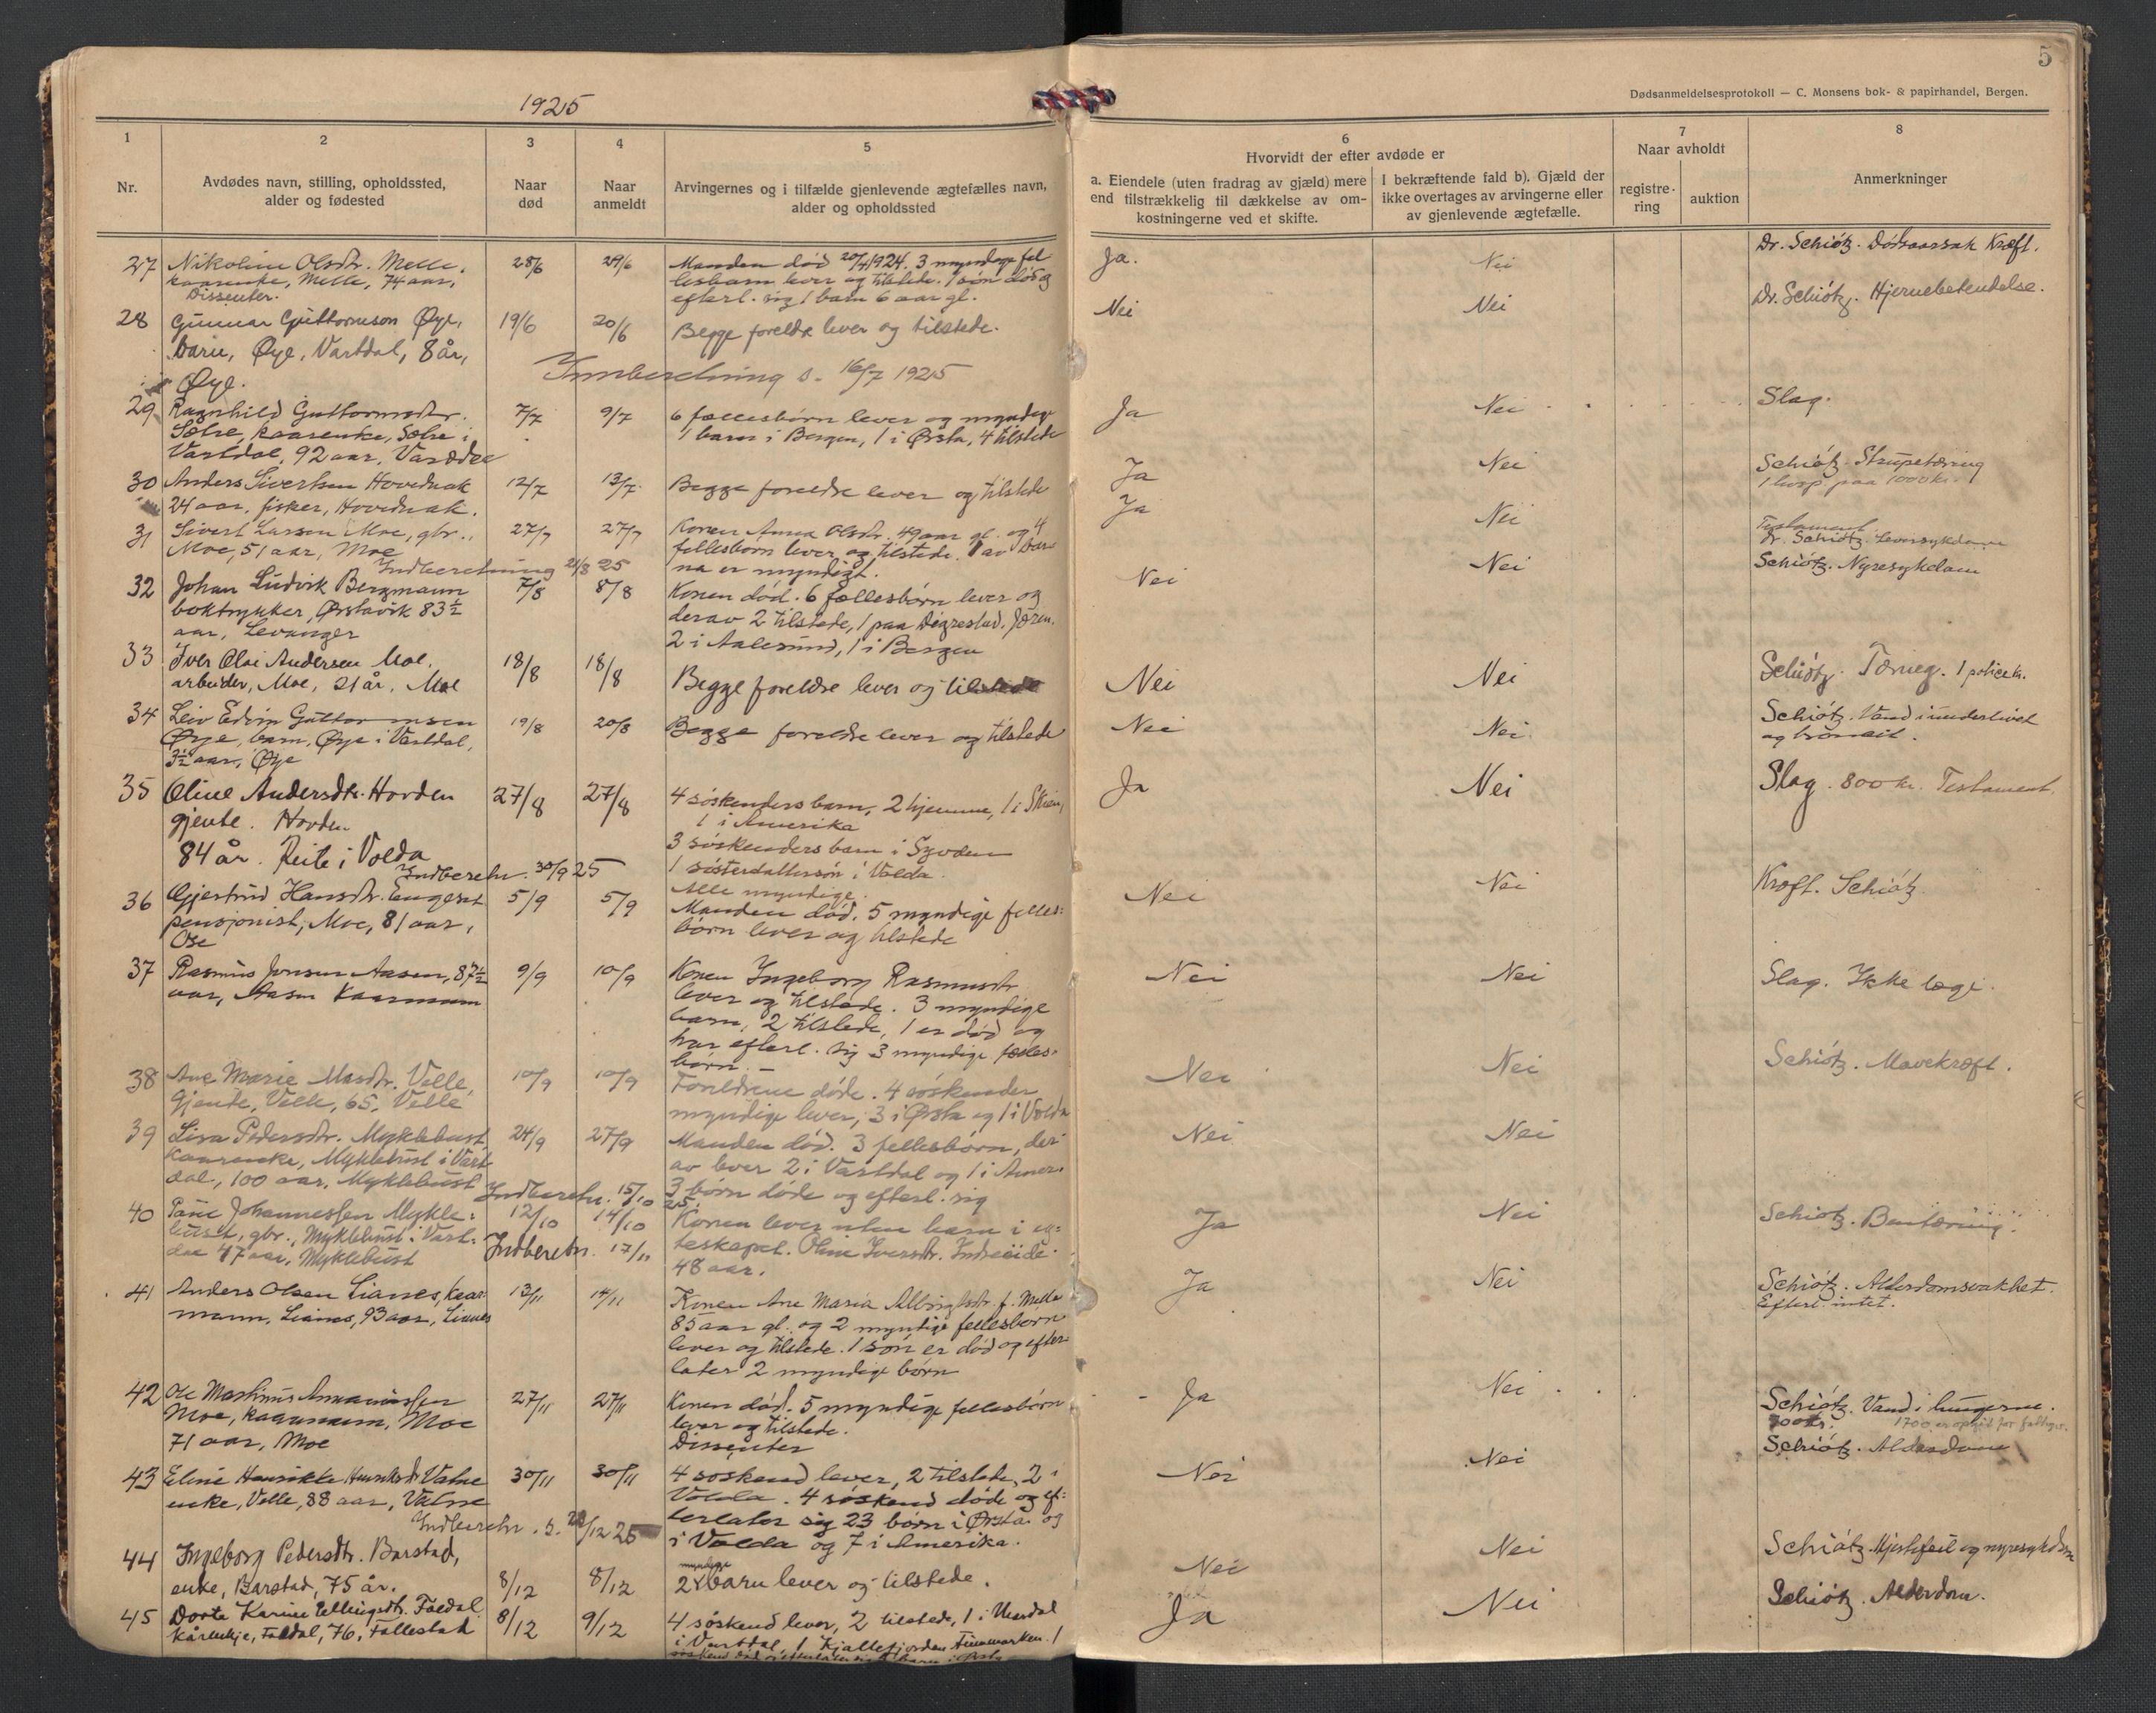 5
1925
Dødsanmeldelsesprotokoll — C. Monsens bok- & papirhandel, Bergen.
1
2
3
4
5
6
7
8
Nr.
Avdødes navn, stilling, opholdssted,
alder og fødested
Naar
død
Naar
anmeldt
Arvingernes og i tilfælde gjenlevende ægtefælles navn,
alder og opholdssted
Hvorvidt der efter avdøde er
a. Eiendele (uten fradrag av gjæld) mere
end tilstrækkelig til dækkelse av om-
kostningerne ved et skifte.
I bekræftende fald b). Gjæld der
ikke overtages av arvingerne eller
av gjenlevende ægtefælle.
Naar avholdt
registre-
ring
auktion
Anmerkninger
27 Nikoline Olsdtr. Melle,
kaarenke, Melle, 74 aar,
Dissenter.
28/6 29/6
Manden død 20/4 1924. 3 myndige fel
lesbarn lever og tilstede. 1 søn død og
efterl. sig 1 barn 6 aar gl.
Ja. Nei
Dr. Schiötz. Dødsaarsak Kræft.
28 Gunnar Guttormson Øye,
barn, Øye, Vartdal, 8 år,
Øye.
19/6 20/6
Begge foreldre lever og tilstede.
Nei Nei
Dr. Schiötz. Hjernebetendelse.
Innberetning s. 16/7 1925
29 Ragnhild Guttormsdtr.
Sætre, kaarenke, Sætre i
Vartdal, 92 aar,
7/7 9/7
6 fællesbørn lever og myndige
1 barn i Bergen, 1 i Ørsta, 4 tilstede
Ja Nei
Slag.
30 Anders Sivertsen Hovdenak
24 aar, fisker, Hovdenak.
12/7 13/7
Begge foreldre lever og tilstede
Ja Nei
Schiötz. Strupetæring
paa 1000 kr.
31 Sivert Larsen Moe, gbr.,
Moe, 51 aar, Moe
27/7 27/7
Konen Anna Olsdtr. 49 aar gl. og 4
fellesbørn lever og tilstede. 1 av bar
na er myndigt.
Ja Nei
Testament
Dr. Schiötz. Leversykdom
Indberetning 21/8 25
32 Johan Ludvik Bergmann
boktrykker, Ørstavik 83½
aar, Levanger
7/8 8/8
Konen død. 6 fællesbørn lever og
derav 2 tilstede, 1 paa Jæren.
2 i Aalesund, 1 i Bergen
Nei Nei
Schiötz. Nyresykdom
33 Iver Olai Andersen Moe,
arbeider, Moe, 21 år, Moe
18/8 18/8
Begge foreldre lever og tilstede
Nei Nei
Schiötz. Tæring. 1 police kr.
34 Leiv Edvin Guttormsen
Øye, barn, Øye i Vartdal,
3½ aar, Øye
19/8 20/8
Begge foreldre lever og tilstede
Nei Nei
Schiötz. Vand i underlivet
og
35 Oline Andersdtr. Hovden
gjente. Hovden
84 år. Reite i Volda
27/8 27/8
4 søskenders barn, 2 hjemme, 1 i Skien,
1 i Amerika
3 søskenders barn i Syvden
1 søsterdattersøn i Volda.
Alle myndige.
Ja Nei
Slag. 800 kr. Testament.
Indberetn. 30/9 25
36 Gjertrud Hansdtr. Engeset
pensjonist, Moe, 81 aar,
Ose
5/9 5/9
Manden død. 5 myndige felles-
børn lever og tilstede
Nei Nei
Kræft. Schiötz
37 Rasmus Jonsen Aasen, 87½
aar, Aasen Kaarmann
9/9 10/9
Konen Ingeborg Rasmusdtr
lever og tilstede. 3 myndige
barn, 2 tilstede, 1 er død og
har efterl. sig 3 myndige felles-
børn. —
Nei Nei
Slag. Ikke læge.
38 Ane Marie Masdtr. Velle,
Gjente, Velle, 65, Velle
10/9 10/9
Foreldrene døde. 4 søskender
myndige lever, 3 i Ørsta og 1 i Volda
Nei Nei
Schiötz. Mavekræft.
39 Lisa Pedersdtr. Myklebust
Kaarenke, Myklebust i Vart
dal, 100 aar, Myklebust
24/9 27/9
Manden død. 3 fellesbørn, der
av lever 2 i Vartdal og 1 i Amer.
3 børn døde og efterl. sig
Nei Nei
Indberetn. 15/10 25.
40 Johannessen Mykle-
bust, gbr., Myklebust i Vart-
dal 47 aar, Myklebust
12/10 14/10
Konen lever uten barn i eg-
teskapet. Oline Iversdtr. Indreeide.
48 aar.
Ja Nei
Schiötz. Bentæring.
Indberetn. 17/11
41 Anders Olsen Lianes, kaar-
mann, Lianes, 93 aar, Lianes
13/11 14/11
Konen Ane Maria Albrigtsdtr. f. Melle
85 aar gl. og 2 myndige fellesbørn
lever og tilstede. 1 søn er død og efter
later 2 myndige børn
Ja Nei
Schiötz. Alderdomsvakhet.
Efterl. intet.
42 Ole Martinus Ananiassen
Moe, kaarmann, Moe
71 aar, Moe
27/11 27/11
Konen død. 5 myndige fellesbørn
lever og tilstede.
Dissenter
Ja Nei
Schiötz. Vand i lungerne.
700 kr.
43 Eline Henrikke Henriksdt. Vatne
enke, Velle, 88 aar, Vatne
30/11 30/11
4 søskend lever, 2 tilstede, 2 i
Volda. 4 søskend døde og ef-
terlater sig 23 børn i Ørsta og
i Volda og 7 i Amerika.
Nei Nei
Schiötz. Alderdom
Indberetn. s. /12 25
44 Ingeborg Pedersdtr. Barstad,
enke, Barstad, 75 år.
8/12 8/12
2 myndige barn lever og tilstede.
Nei Nei
Schiötz. Hjertefeil og nyresykdom
45 Dorte Karine Ellingsdtr. Foldal
kårenkje, Foldal, 76, Follestad
8/12 9/12
4 søskend lever, 2 tilstede, 1 i
i Vartdal, 1 Kjøllefjorden Finnmarken. 1
Ja Nei
Schiötz. Alderdom.